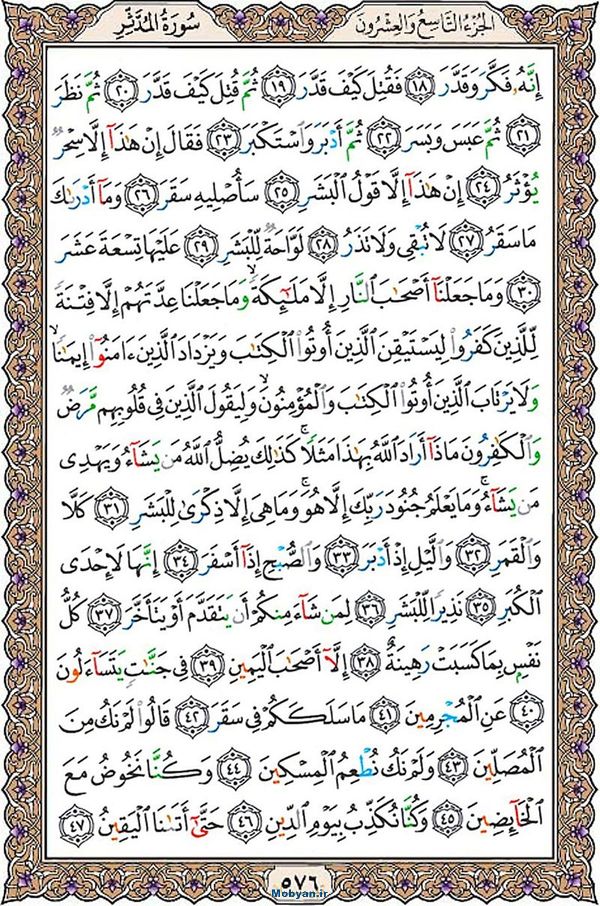 الجزء التاسع والعشرون سورة المدثر
إِنَّهُۥ فَكَّرَ وَقَدَّرَ ﴿١٨﴾ فَقُتِلَ كَيۡفَ قَدَّرَ ﴿١٩﴾ ثُمَّ قُتِلَ كَيۡفَ قَدَّرَ ﴿٢٠﴾ ثُمَّ نَظَرَ
﴿٢١﴾ ثُمَّ عَبَسَ وَبَسَرَ ﴿٢٢﴾ ثُمَّ أَدۡبَرَ وَٱسۡتَكۡبَرَ ﴿٢٣﴾ فَقَالَ إِنۡ هَٰذَآ إِلَّا سِحۡرٞ
يُؤۡثَرُ ﴿٢٤﴾ إِنۡ هَٰذَآ إِلَّا قَوۡلُ ٱلۡبَشَرِ ﴿٢٥﴾ سَأُصۡلِيهِ سَقَرَ ﴿٢٦﴾ وَمَآ أَدۡرَىٰكَ
مَا سَقَرُ ﴿٢٧﴾ لَا تُبۡقِي وَلَا تَذَرُ ﴿٢٨﴾ لَوَّاحَةٞ لِّلۡبَشَرِ ﴿٢٩﴾ عَلَيۡهَا تِسۡعَةَ عَشَرَ
﴿٣٠﴾ وَمَا جَعَلۡنَآ أَصۡحَٰبَ ٱلنَّارِ إِلَّا مَلَٰٓئِكَةٗۖ وَمَا جَعَلۡنَا عِدَّتَهُمۡ إِلَّا فِتۡنَةٗ
لِّلَّذِينَ كَفَرُواْ لِيَسۡتَيۡقِنَ ٱلَّذِينَ أُوتُواْ ٱلۡكِتَٰبَ وَيَزۡدَادَ ٱلَّذِينَ ءَامَنُوٓاْ إِيمَٰنٗا
وَلَا يَرۡتَابَ ٱلَّذِينَ أُوتُواْ ٱلۡكِتَٰبَ وَٱلۡمُؤۡمِنُونَ وَلِيَقُولَ ٱلَّذِينَ فِي قُلُوبِهِم مَّرَضٞ
وَٱلۡكَٰفِرُونَ مَاذَآ أَرَادَ ٱللَّهُ بِهَٰذَا مَثَلٗاۚ كَذَٰلِكَ يُضِلُّ ٱللَّهُ مَن يَشَآءُ وَيَهۡدِي
مَن يَشَآءُۚ وَمَا يَعۡلَمُ جُنُودَ رَبِّكَ إِلَّا هُوَۚ وَمَا هِيَ إِلَّا ذِكۡرَىٰ لِلۡبَشَرِ ﴿٣١﴾ كَلَّا
وَٱلۡقَمَرِ ﴿٣٢﴾ وَٱلَّيۡلِ إِذۡ أَدۡبَرَ ﴿٣٣﴾ وَٱلصُّبۡحِ إِذَآ أَسۡفَرَ ﴿٣٤﴾ إِنَّهَا لَإِحۡدَى
ٱلۡكُبَرِ ﴿٣٥﴾ نَذِيرٗا لِّلۡبَشَرِ ﴿٣٦﴾ لِمَن شَآءَ مِنكُمۡ أَن يَتَقَدَّمَ أَوۡ يَتَأَخَّرَ ﴿٣٧﴾ كُلُّ
نَفۡسِۭ بِمَا كَسَبَتۡ رَهِينَةٌ ﴿٣٨﴾ إِلَّآ أَصۡحَٰبَ ٱلۡيَمِينِ ﴿٣٩﴾ فِي جَنَّٰتٖ يَتَسَآءَلُونَ
﴿٤٠﴾ عَنِ ٱلۡمُجۡرِمِينَ ﴿٤١﴾ مَا سَلَكَكُمۡ فِي سَقَرَ ﴿٤٢﴾ قَالُواْ لَمۡ نَكُ مِنَ
ٱلۡمُصَلِّينَ ﴿٤٣﴾ وَلَمۡ نَكُ نُطۡعِمُ ٱلۡمِسۡكِينَ ﴿٤٤﴾ وَكُنَّا نَخُوضُ مَعَ
ٱلۡخَآئِضِينَ ﴿٤٥﴾ وَكُنَّا نُكَذِّبُ بِيَوۡمِ ٱلدِّينِ ﴿٤٦﴾ حَتَّىٰٓ أَتَىٰنَا ٱلۡيَقِينُ ﴿٤٧﴾
٥٧٦
Mobyan.ir